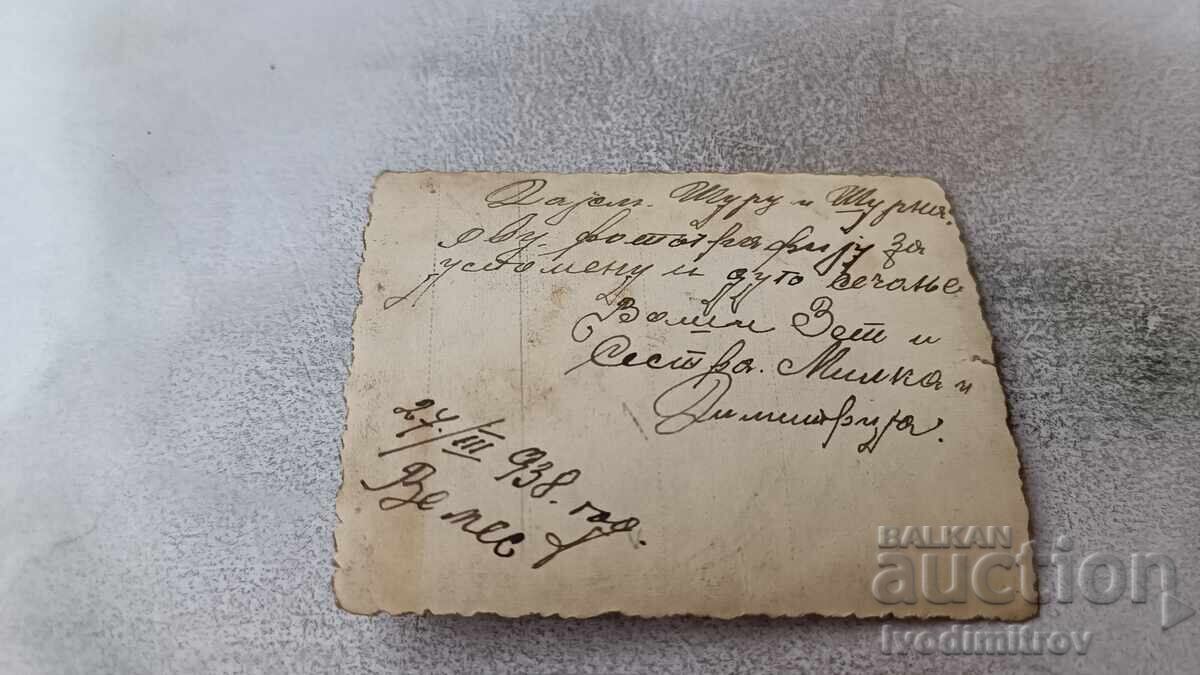 Дајем. Шуру и Шурна.
ову фотографију за
успомену и дуго сечање
Ваши Зет и
Сестра. Милка и
Димитрија.
24/III 938. год.
Велес
BALKAN
auction
ivodimitrov